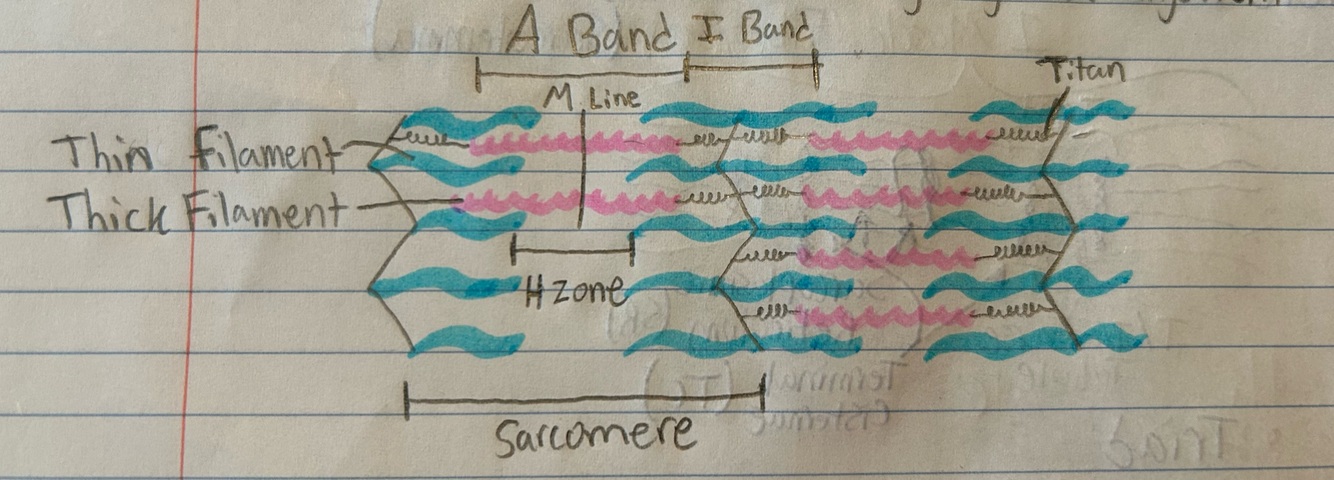 A Band I Band
M Line
Titan
Thin Filament
Thick Filament
H zone
Sarcomere